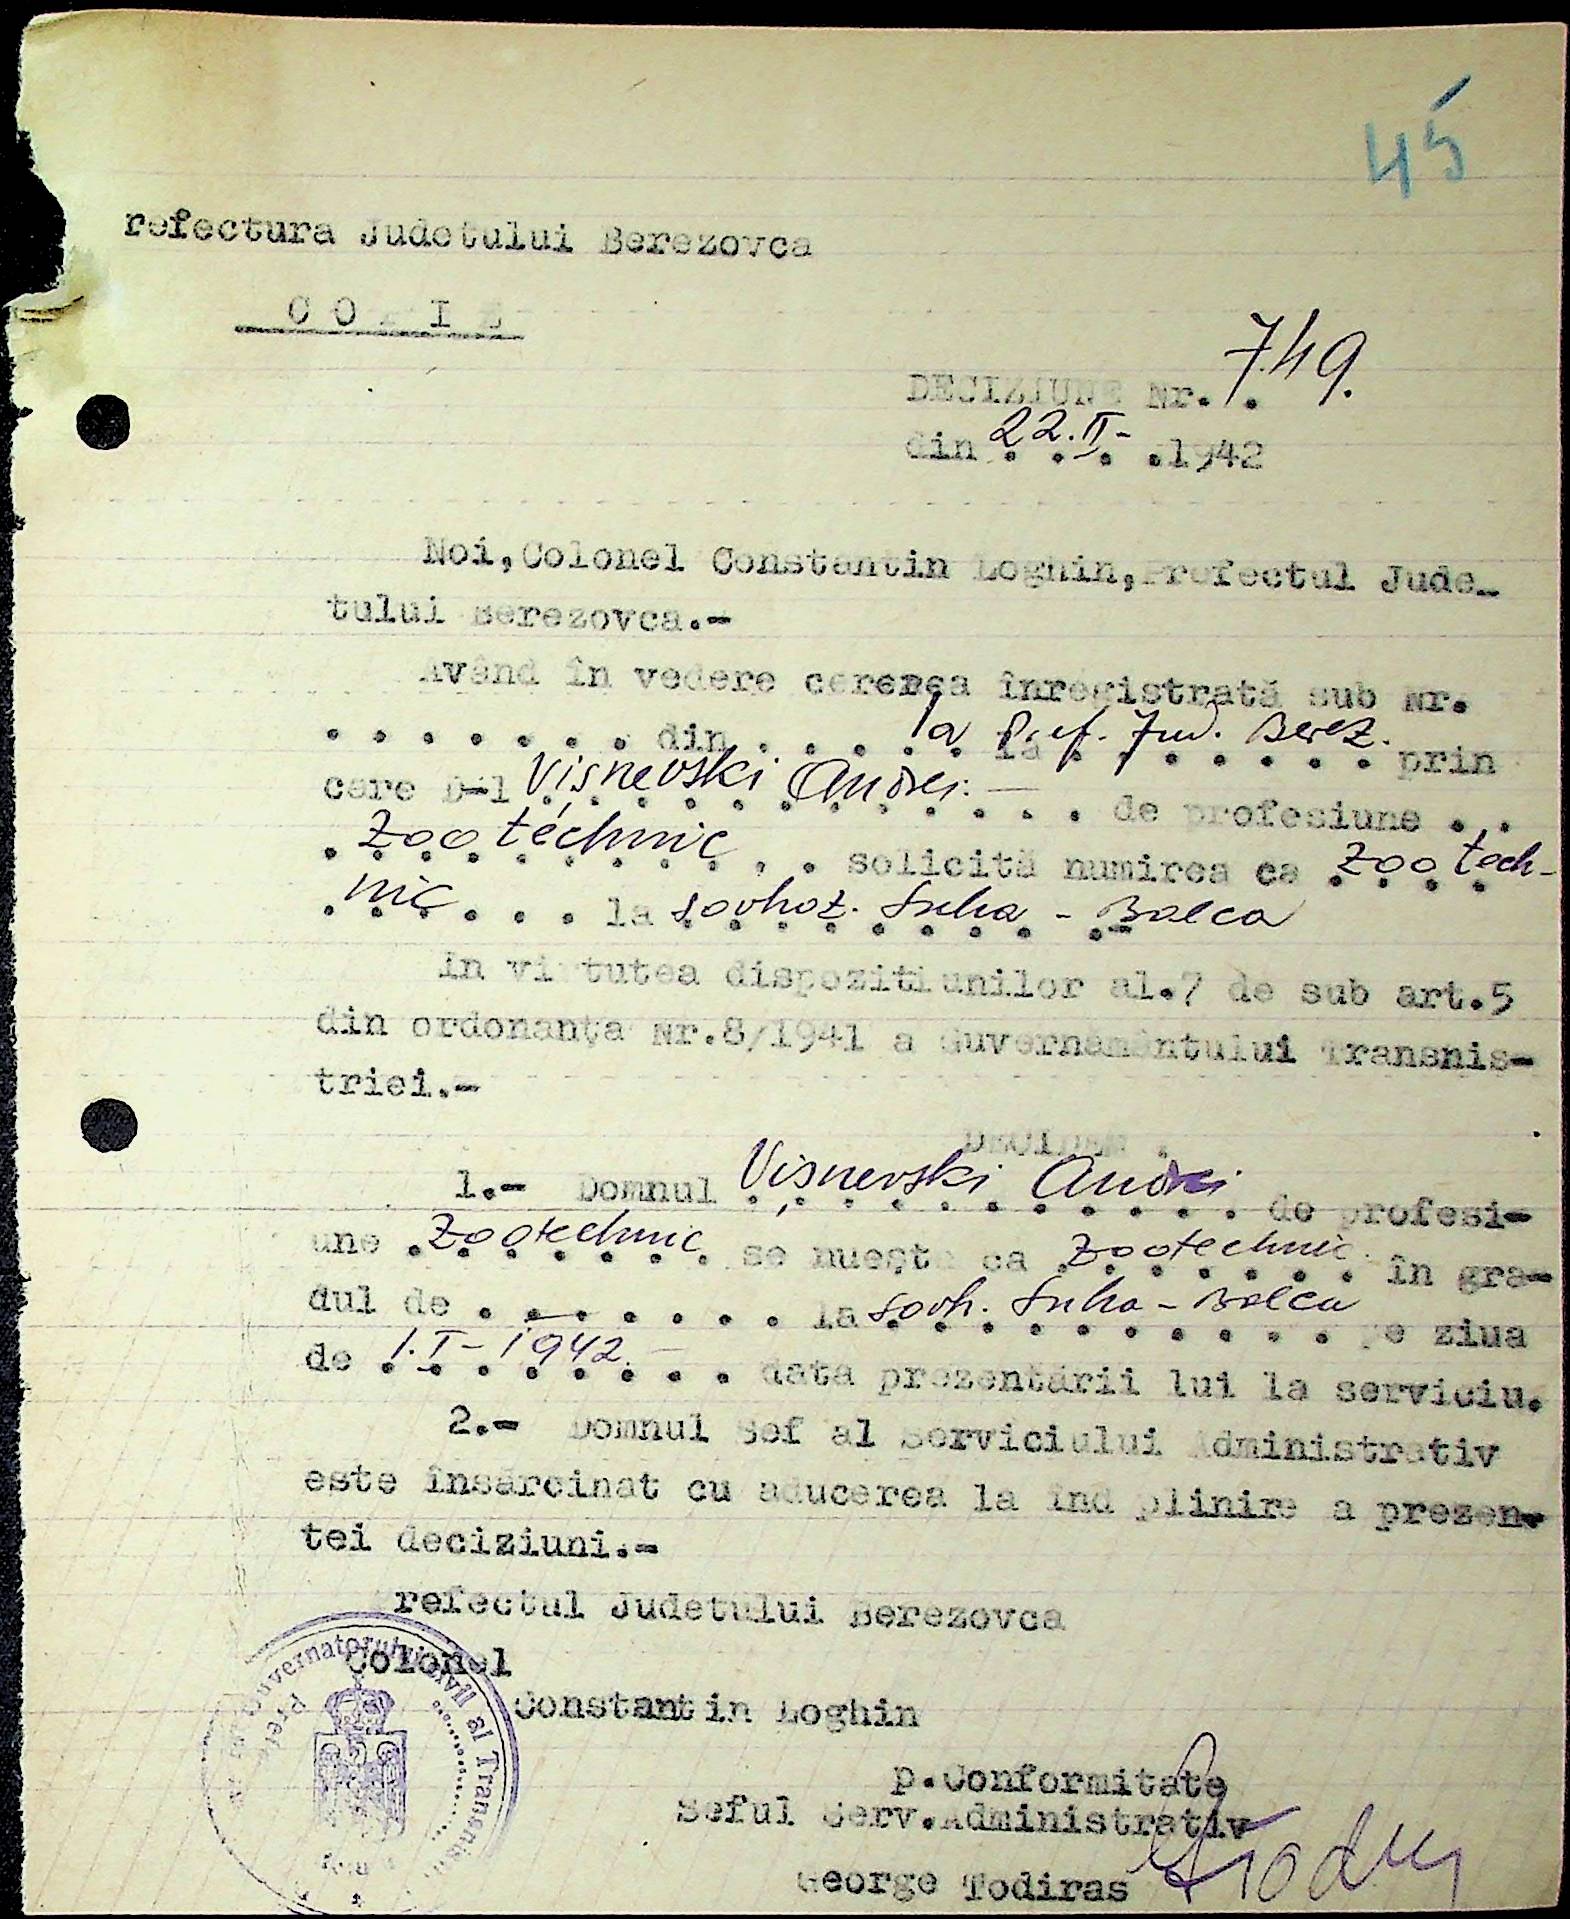 45
refectura Judetului Berezovca
C O P I E
DECIZIUNE Nr. 749.
din 22.II- 1942
Noi, Colonel Constantin Loghin, Prefectul Jude-
tului Berezovca.-
Având în vedere cererea înregistrată sub Nr.
. . . . . . . din . . . . . la Pref. Jud. Berez. prin
care D-l Vișnevski Andrei. — de profesiune . .
Zootechnic . . solicită numirea ca Zootech-
nic . . . la sovhoz. Suha - Balca
In virtutea dispozitiunilor al.7 de sub art.5
din ordonanța Nr.8/1941 a Guvernământului Transnis-
triei.-
DECIDEM :
1.- Domnul Vișnevski Andrei . de profesi-
une Zootechnic se nuește ca Zootechnic în gra-
dul de . . . . . . . la sovh. Suha - Balca pe ziua
de 1.I-1942. — data prezentării lui la serviciu.
2.- Domnul Sef al Serviciului Administrativ
este însărcinat cu aducerea la înd plinire a prezen-
tei deciziuni.-
refectul Judetului Berezovca
Colonel
Constantin Loghin
p.Conformitate
Seful Serv.Administrativ
George Todiras
Guvernatorul Civil al Transnis
Prefe